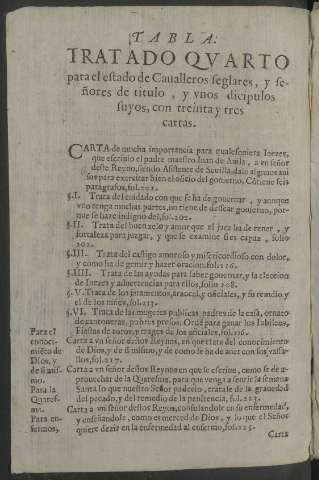 TABLA:
TRATADO QVARTO
para el estado de Caualleros seglares, y se-
ñores de titulo, y vnos dicipulos
suyos, con treinta y tres
cartas.
CARTA de mucha importancia para qualesquiera Iuezes,
que escriuio el padre maestro Iuan de Auila, a vn señor
deste Reyno, siendo Assistente de Seuilla, dale algunos aui
sos para exercitar bien el oficio del gouierno. Cõtiene seis
paragrafos, fol.202.
§.I. Trata del cuidado con que se ha de gouernar, y aunque
vno tenga muchas partes, no tiene de dessear gouierno, por-
que se haze indigno del, fol.202.
§.II. Trata del buen zelo y amor que el juez ha de tener, y
fortaleza para juzgar, y que se examine si es capaz, folio
202.
§.III. Trata del castigo amoroso y misericordioso con dolor,
y como ha de gemir y hazer oracion, fol.
§.IIII. Trata de las ayudas para saber gouernar, y la eleccion
de Iuezes y aduertencias para ellos, folio 208.
§.V. Trata de los juramentos, arancel, y oficiales, y su remedio, y
el de los niños, fol.213.
§.VI. Trata de las mugeres publicas, padres de la casa, ornato
de cantoneras, pobres presos: Ordẽ para ganar los Iubileos,
Fiestas de toros, y trages de los oficiales, fol.216.
Para el conoci- miẽto de Dios, y de si mis- mo.
Carta a vn señor destos Reynos, en que trata del conocimiento
de Dios, y de si mismo, y de como se ha de auer con sus vassa-
llos, fol.217.
Para la Quares- ma.
Carta a vn señor destos Reynos en que se escriue, como se ha de
aprouechar de la Quaresma, para que venga a sentir la semana
Santa lo que nuestro Señor padecio, tratase de la grauedad
del pecado, y del remedio de la penitencia, fol.223.
Para en- fermos.
Carta a vn señor destos Reynos, consolandole en su enfermedad,
y enseñandole, como es merced de Dios, y lo que el Señor
quiere dezir en la enfermedad al enfermo, fol.225.
Carta